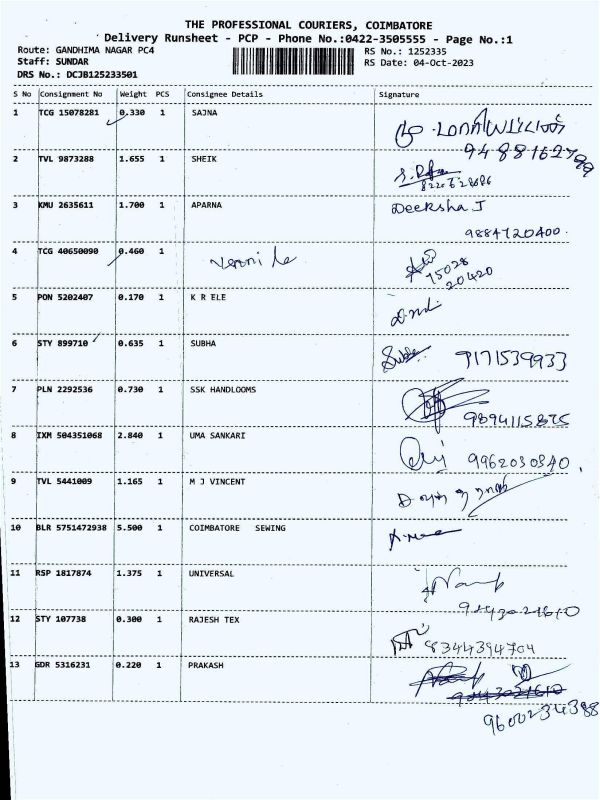 THE PROFESSIONAL COURIERS, COIMBATORE
Delivery Runsheet - PCP - Phone No.:0422-3505555 - Page No.:1
Route: GANDHIMA NAGAR PC4 RS No.: 1252335
Staff: SUNDAR RS Date: 04-Oct-2023
DRS No.: DCJB125233501
S No Consignment No Weight PCS Consignee Details Signature
1 TCG 15078281 0.330 1 SAJNA
2 TVL 9873288 1.655 1 SHEIK
3 KMU 2635611 1.700 1 APARNA Deeksha J
9884720400.
4 TCG 40650090 0.460 1
75028
20420
5 PON 5202407 0.170 1 K R ELE
6 STY 899710 0.635 1 SUBHA 9171539933
7 PLN 2292536 0.730 1 SSK HANDLOOMS
9894115875
8 IXM 504351068 2.840 1 UMA SANKARI
9962030340
9 TVL 5441009 1.165 1 M J VINCENT
10 BLR 5751472938 5.500 1 COIMBATORE SEWING
11 RSP 1817874 1.375 1 UNIVERSAL
12 STY 107738 0.300 1 RAJESH TEX
8344394704
13 GDR 5316231 0.220 1 PRAKASH
9600234388